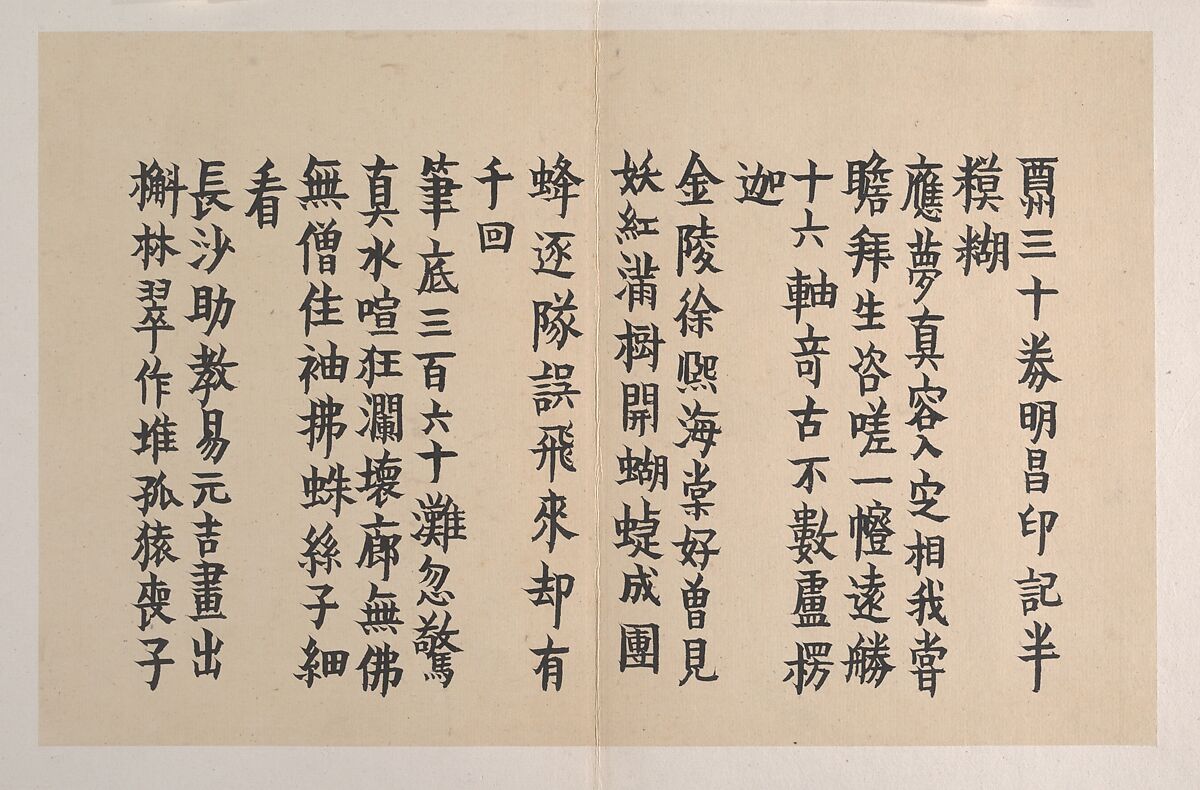 酬三十券明昌印記半
糢糊
應夢真容入定相我嘗
瞻拜生咨嗟一㡧遠勝
十六軸竒古不數盧楞
迦
金陵徐熈海棠好曾見
妖紅滿樹開蝴蜨成團
蜂逐隊誤飛來却有
千回
筆底三百六十灘忽驚
真水喧狂瀾壞廊無佛
無僧住袖拂蛛絲子細
看
長沙助教易元吉畫出
槲林翠作堆孤猿喪子